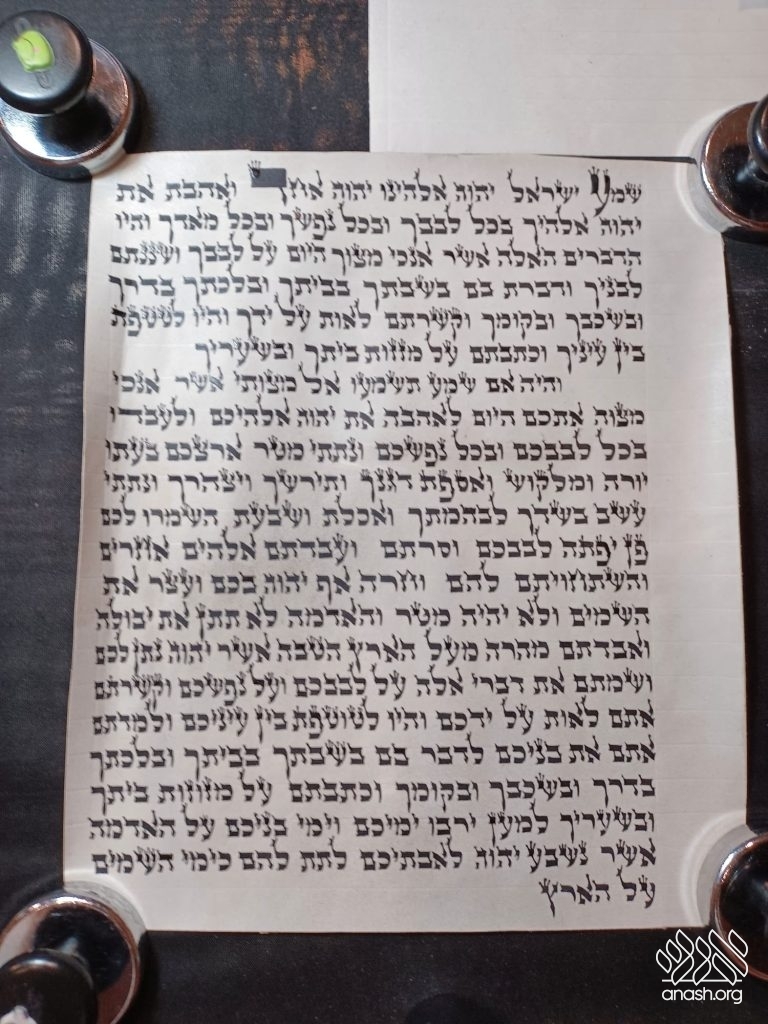 שמע ישראל יהוה אלהינו יהוה אחד ואהבת את
יהוה אלהיך בכל לבבך ובכל נפשך ובכל מאדך והיו
הדברים האלה אשר אנכי מצוך היום על לבבך ושננתם
לבניך ודברת בם בשבתך בביתך ובלכתך בדרך
ובשכבך ובקומך וקשרתם לאות על ידך והיו לטטפת
בין עיניך וכתבתם על מזזות ביתך ובשעריך
והיה אם שמע תשמעו אל מצותי אשר אנכי
מצוה אתכם היום לאהבה את יהוה אלהיכם ולעבדו
בכל לבבכם ובכל נפשכם ונתתי מטר ארצכם בעתו
יורה ומלקוש ואספת דגנך ותירשך ויצהרך ונתתי
עשב בשדך לבהמתך ואכלת ושבעת השמרו לכם
פן יפתה לבבכם וסרתם ועבדתם אלהים אחרים
והשתחויתם להם וחרה אף יהוה בכם ועצר את
השמים ולא יהיה מטר והאדמה לא תתן את יבולה
ואבדתם מהרה מעל הארץ הטבה אשר יהוה נתן לכם
ושמתם את דברי אלה על לבבכם ועל נפשכם וקשרתם
אתם לאות על ידכם והיו לטוטפת בין עיניכם ולמדתם
אתם את בניכם לדבר בם בשבתך בביתך ובלכתך
בדרך ובשכבך ובקומך וכתבתם על מזוזות ביתך
ובשעריך למען ירבו ימיכם וימי בניכם על האדמה
אשר נשבע יהוה לאבתיכם לתת להם כימי השמים
על הארץ
anash.org